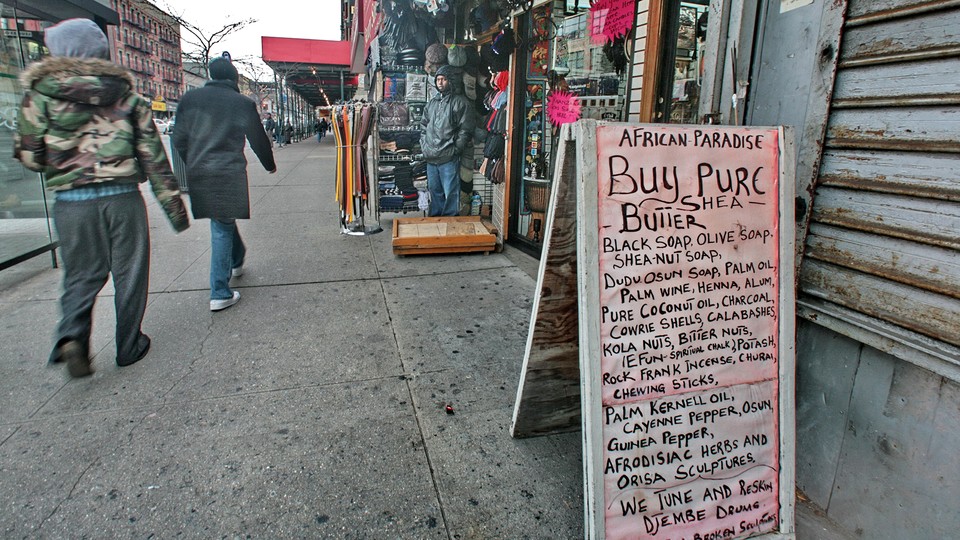 AFRICAN-PARADISE
BUY PURE
SHEA-
-BUTTER
BLACK SOAP, OLIVE SOAP.
SHEA-NUT SOAP,
DUDU OSUN SOAP, PALM OIL,
PALM WINE, HENNA, ALUM,
PURE COCONUT OIL, CHARCOAL,
COWRIE SHELLS, CALABASHES,
KOLA NUTS, BITTER NUTS,
(EFUN-SPIRITUAL CHALK), POTASH,
ROCK FRANK INCENSE, CHURAI,
CHEWING STICKS,
PALM KERNELL OIL,
CAYENNE PEPPER, OSUN,
GUINEA PEPPER,
AFRODISIAC HERBS AND
ORISA SCULPTURES,
WE TUNE AND RESKIN
DJEMBE DRUMS.
BROKEN SCULPTURES